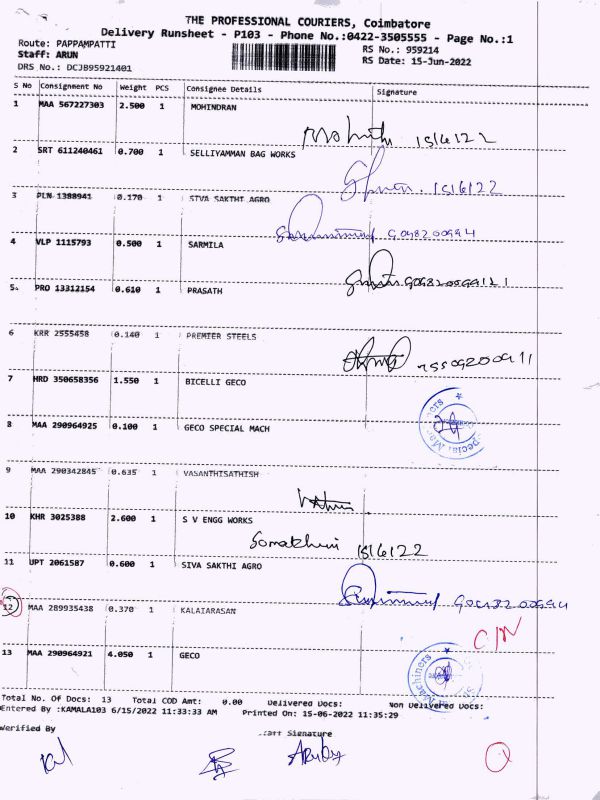 THE PROFESSIONAL COURIERS, Coimbatore
Delivery Runsheet - P103 - Phone No.:0422-3505555 - Page No.:1
Route: PAPPAMPATTI
RS No.: 959214
Staff: ARUN
RS Date: 15-Jun-2022
DRS No.: DCJB95921401
S No Consignment No Weight PCS Consignee Details Signature
1 MAA 567227303 2.500 1 MOHINDRAN
15/6/22
2 SRT 611240461 0.700 1 SELLIYAMMAN BAG WORKS
15/6/22
3 PLN 1388941 0.170 1 SIVA SAKTHI AGRO
4 VLP 1115793 0.500 1 SARMILA
5 PRO 13312154 0.610 1 PRASATH
6 KRR 2555458 0.140 1 PREMIER STEELS
7 HRD 350658356 1.550 1 BICELLI GECO
8 MAA 290964925 0.100 1 GECO SPECIAL MACH
9 MAA 290342845 0.635 1 VASANTHISATHISH
10 KHR 3025388 2.600 1 S V ENGG WORKS
15/6/22
11 UPT 2061587 0.600 1 SIVA SAKTHI AGRO
12 MAA 289935438 0.370 1 KALAIARASAN
C/N
13 MAA 290964921 4.050 1 GECO
Total No. Of Docs: 13 Total COD Amt: 0.00 Delivered Docs: Non Delivered Docs:
Entered By :KAMALA103 6/15/2022 11:33:33 AM Printed On: 15-06-2022 11:35:29
Verified By
Signature